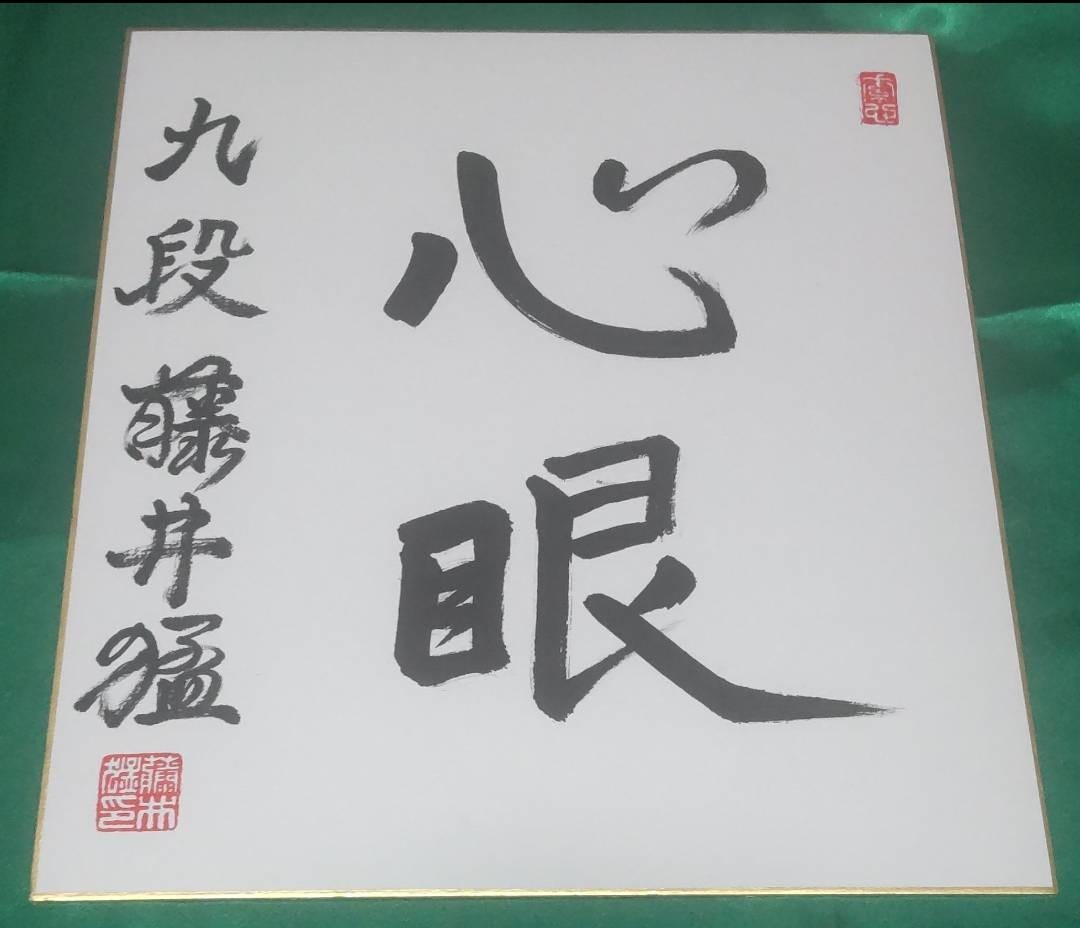 心眼
九段 藤井猛
藤井猛印